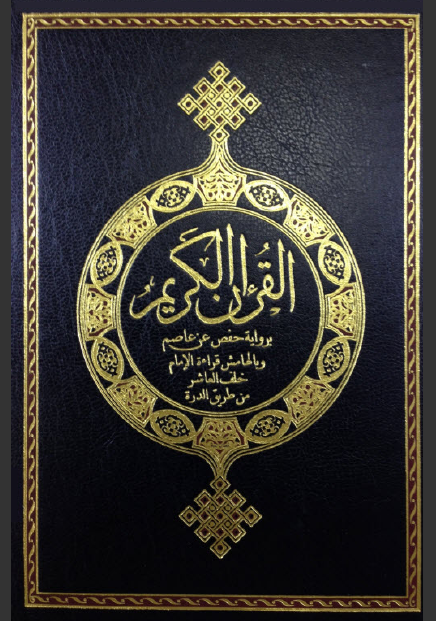 القرءان الكريم
برواية حفص عن عاصم
وبالهامش قراءة الإمام
خلف العاشر
من طريق الدرة